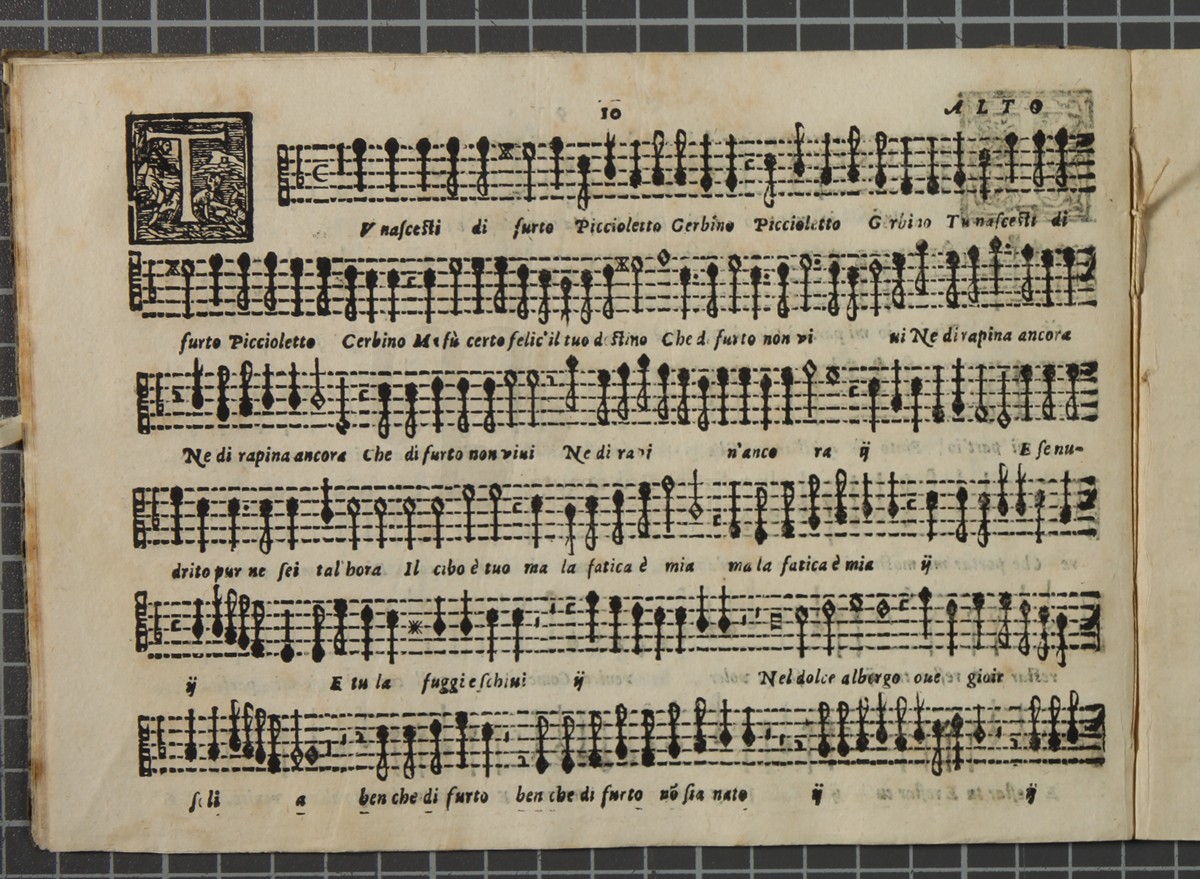 10 ALTO
T V nascesti di furto Piccioletto Gerbino Piccioletto Gerbino Tu nascesti di
furto Piccioletto Cerbino Ma fù certo felic'il tuo destino Che di furto non vi ui Ne di rapina ancora
Ne di rapina ancora Che di furto non viui Ne di rapi n'anco ra ij E se nu-
drito pur ne sei tal'hora Il cibo è tuo ma la fatica è mia ma la fatica è mia ij
ij E tu la fuggi e schiui ij Nel dolce albergo oue gioir
soli a ben che di furto ben che di furto nõ sia nato ij ij